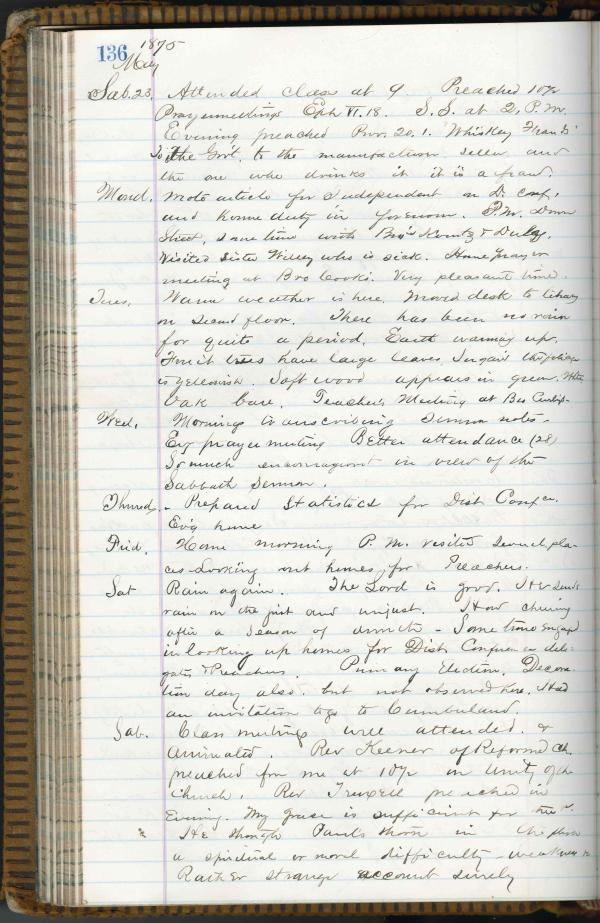 136 1875
May
Sab. 23. Attended class at 9. Preached 10½
Prayermeetings Eph VI.18. S.S. at 2, P.M.
Evening preached Prov. 20.1. Whiskey Frauds
To the Gov't, to the manufacturer seller and
the one who drinks it it is a fraud.
Mond. Wrote article for Independent on D. Conf,
and home duty in forenoon. P.M. Down
Street, some time with Bro's &
Visited Sister Willey who is sick. Home prayer
meeting at Bro Cooks. Very pleasant time.
Tues. Warm weather is here. Moved desk to library
on second floor. There has been no rain
for quite a period. Earth warming up.
Fruit trees have large leaves, Sugar the foliage
is yellowish. Soft wood appears in green. White
Oak bare. Teacher's Meeting at Bro
Wed. Morning transcribing sermon notes.
Ev'g prayer meeting Better attendance (28)
So much encouragement in view of the
Sabbath sermon.
Thursd. - Prepared Statistics for Dist Confce.
Ev'g home
Frid. Home morning P.M. visited several pla-
ces looking out homes for Preachers.
Sat Rain again. The Lord is good. He sends
rain on the just and unjust. How cheering
after a season of drouth - Some time engaged
in looking up homes for Dist Conference dele-
gates & Preachers. Primary Election. Decora-
tion day also; but not observed here. Had
an invitation to go to Cumberland.
Sab. Class meeting well attended. &
animated. Rev Keener of Reformed Ch.
preached for me at 10½ on Unity of the
Church. Rev Truxell preached in
Evening. My Grace is sufficient for thee.
He thought Pauls thorn in the flesh
a spiritual or moral difficulty - weakness
Rather strange account surely